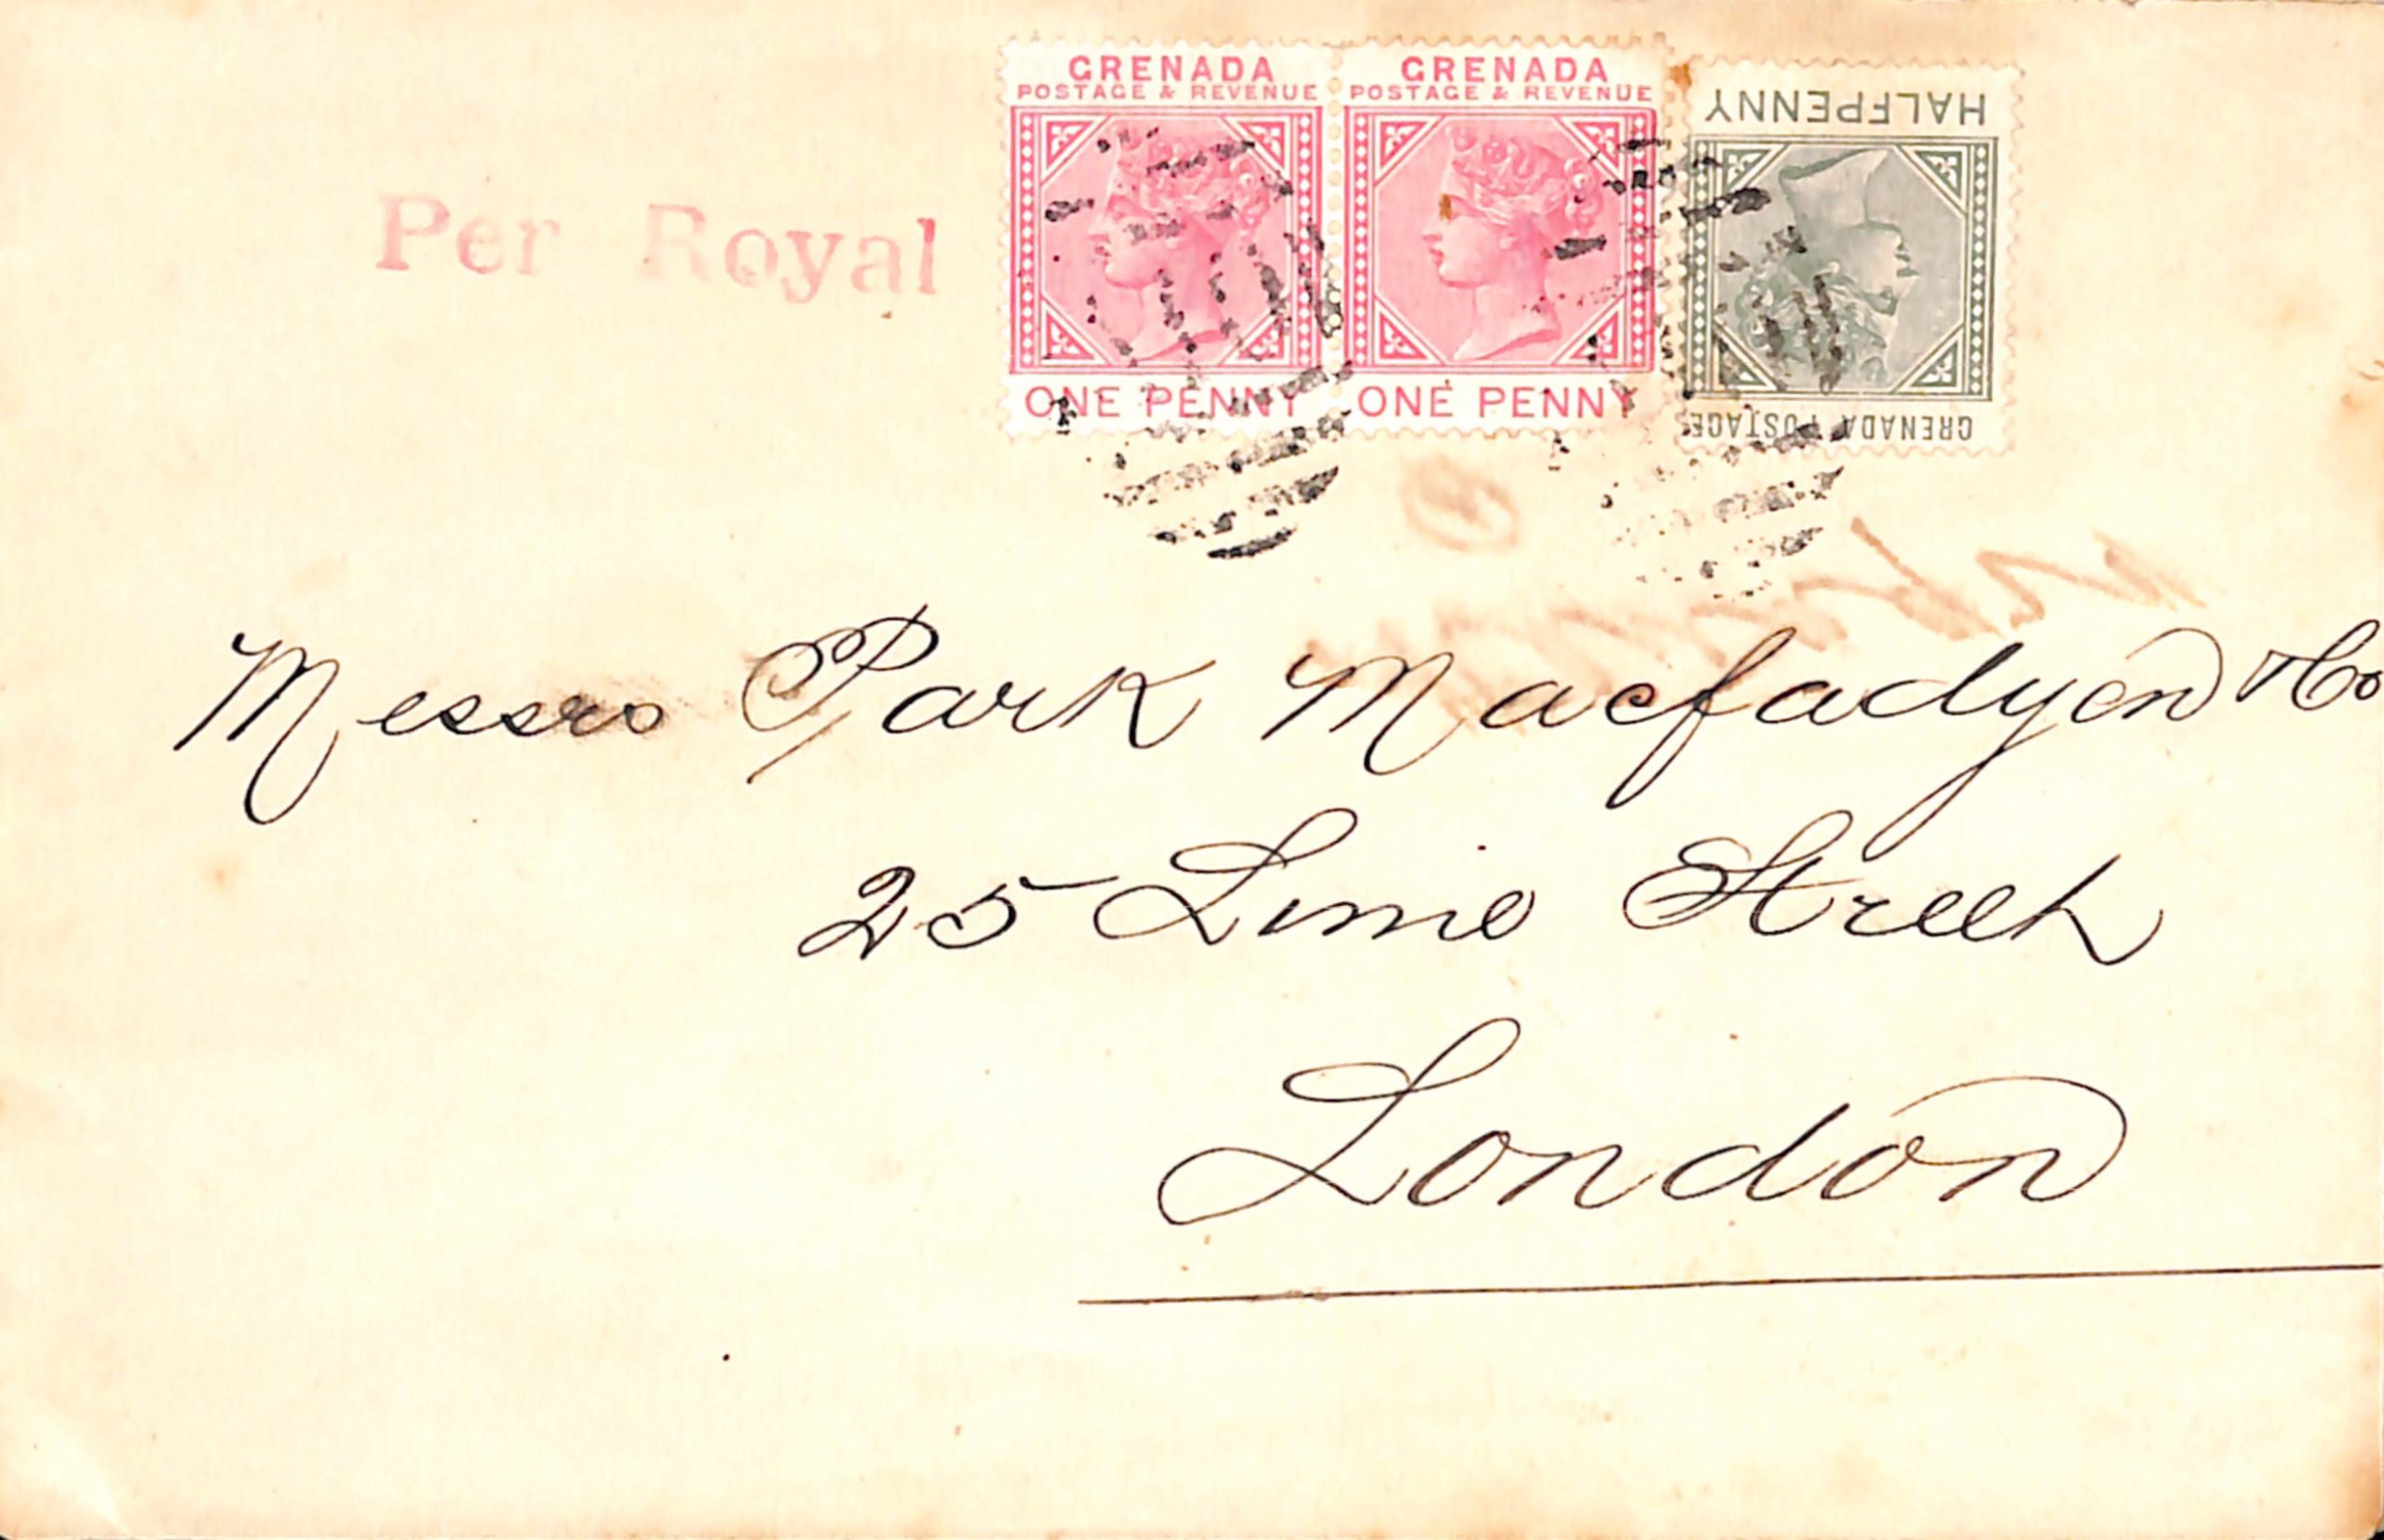 GRENADA
POSTAGE & REVENUE
ONE PENNY
GRENADA
POSTAGE & REVENUE
ONE PENNY
HALFPENNY
GRENADA POSTAGE
Per Royal
Messrs Park Macfadyen & Co
25 Lime Street
London